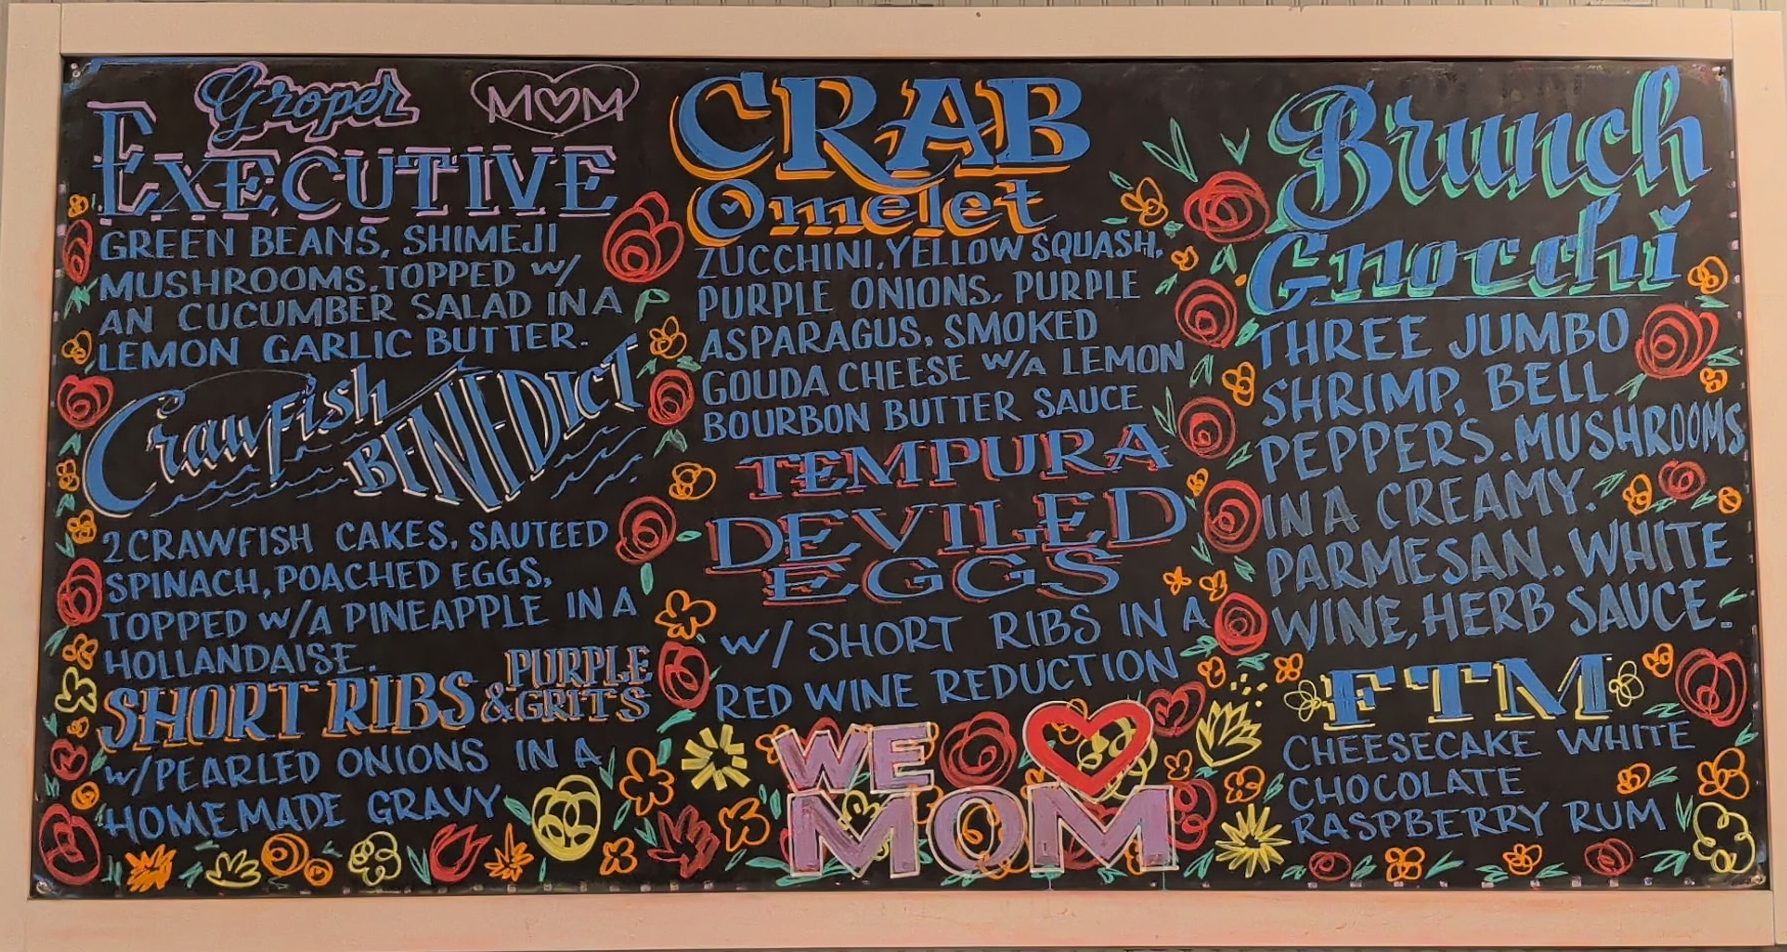 Groper
MOM
EXECUTIVE
GREEN BEANS, SHIMEJI
MUSHROOMS, TOPPED W/
AN CUCUMBER SALAD IN A
LEMON GARLIC BUTTER.
Crawfish
BENEDICT
2 CRAWFISH CAKES, SAUTEED
SPINACH, POACHED EGGS,
TOPPED W/A PINEAPPLE IN A
HOLLANDAISE.
SHORT RIBS PURPLE
& GRITS
W/PEARLED ONIONS IN A
HOMEMADE GRAVY
CRAB
Omelet
ZUCCHINI, YELLOW SQUASH,
PURPLE ONIONS, PURPLE
ASPARAGUS, SMOKED
GOUDA CHEESE W/A LEMON
BOURBON BUTTER SAUCE
TEMPURA
DEVILED
EGGS
W/ SHORT RIBS IN A
RED WINE REDUCTION
WE
MOM
Brunch
Gnocchi
THREE JUMBO
SHRIMP, BELL
PEPPERS, MUSHROOMS
IN A CREAMY.
PARMESAN. WHITE
WINE, HERB SAUCE.
FTM
CHEESECAKE WHITE
CHOCOLATE
RASPBERRY RUM